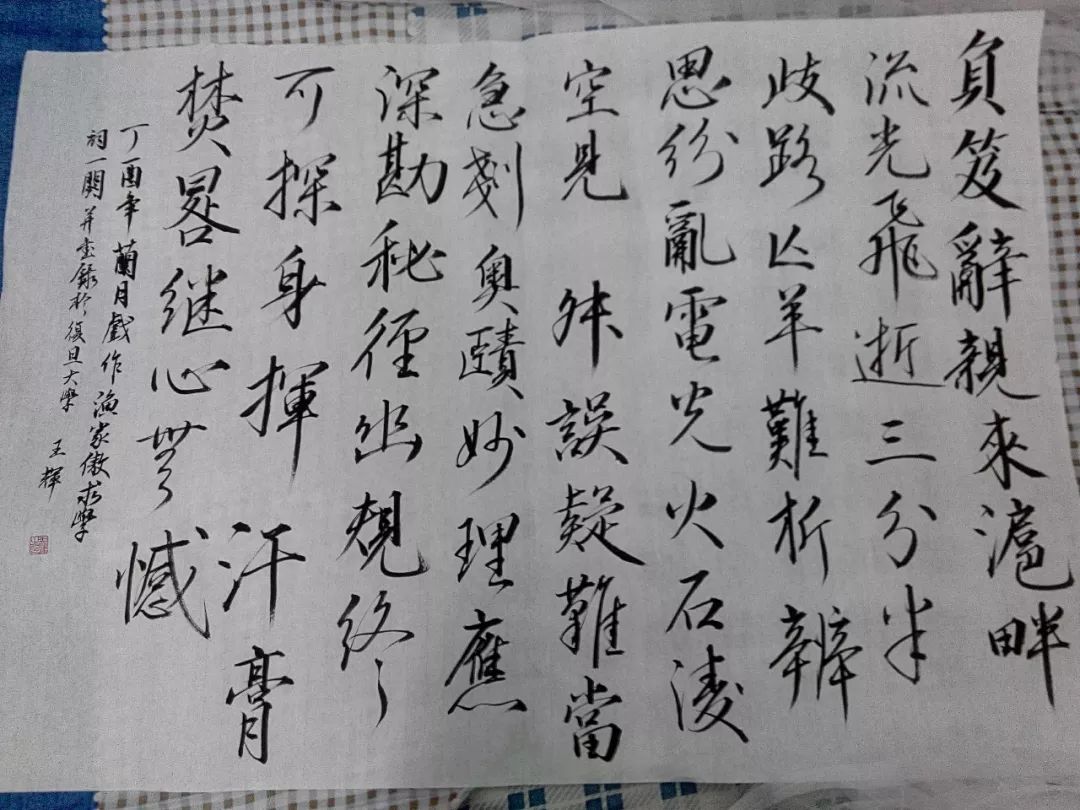 負笈辭親來滬畔
流光飛逝三分半
歧路亡羊難析辨
思紛亂電光火石淩
空見 舛誤疑難當
急剗奧賾妙理應
深勘秘徑幽覘終
可探身揮汗膏
焚晷继心無憾
丁酉年蘭月戲作漁家傲求學
詞一闋并書錄於復旦大學 王輝